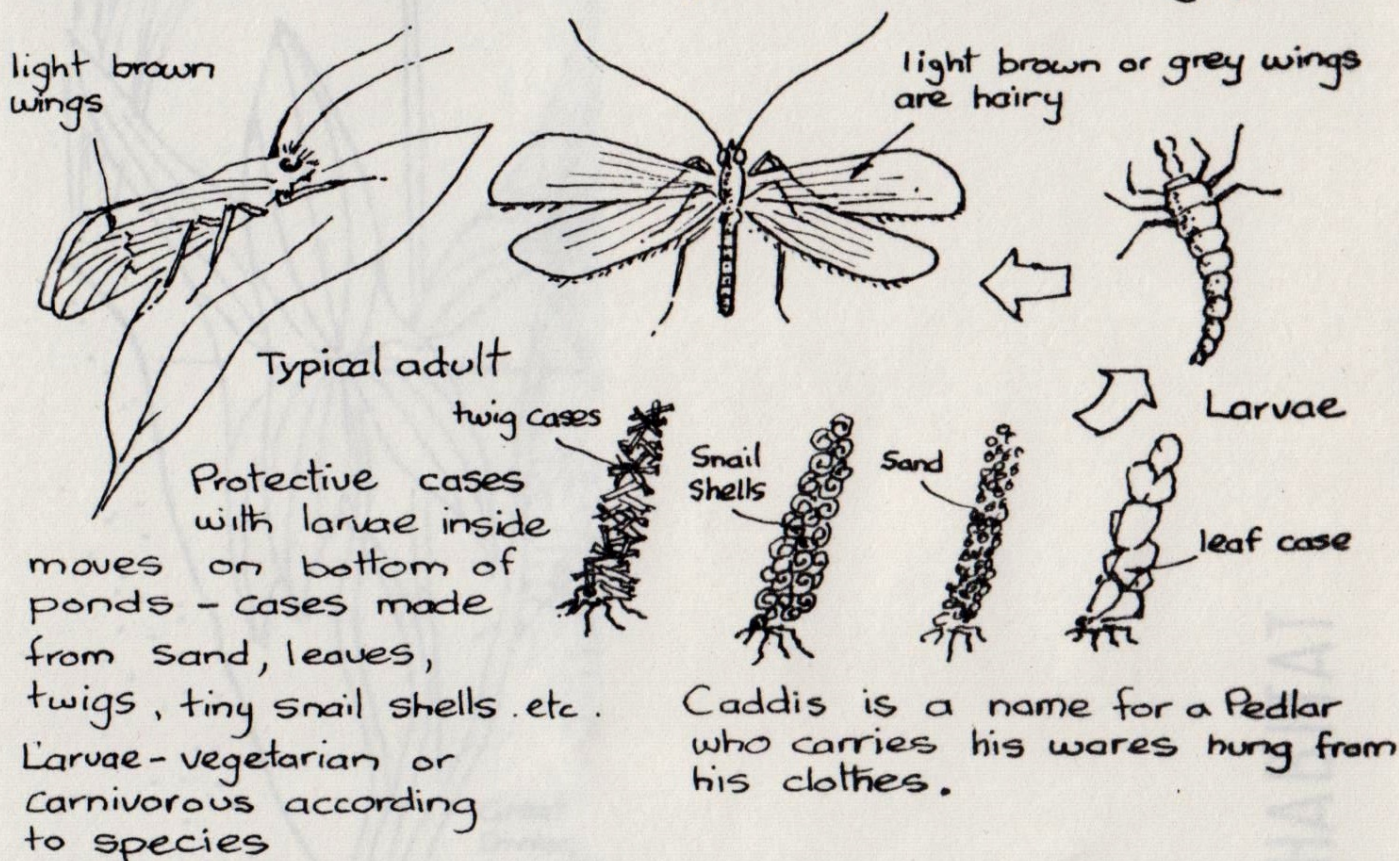 light brown
wings
light brown or grey wings
are hairy
Typical adult
Larvae
twig cases
Snail
Shells
Sand
leaf case
Protective cases
with larvae inside
moves on bottom of
ponds - cases made
from Sand, leaves,
twigs, tiny snail shells.etc.
Larvae - vegetarian or
carnivorous according
to species
Caddis is a name for a Pedlar
who carries his wares hung from
his clothes.